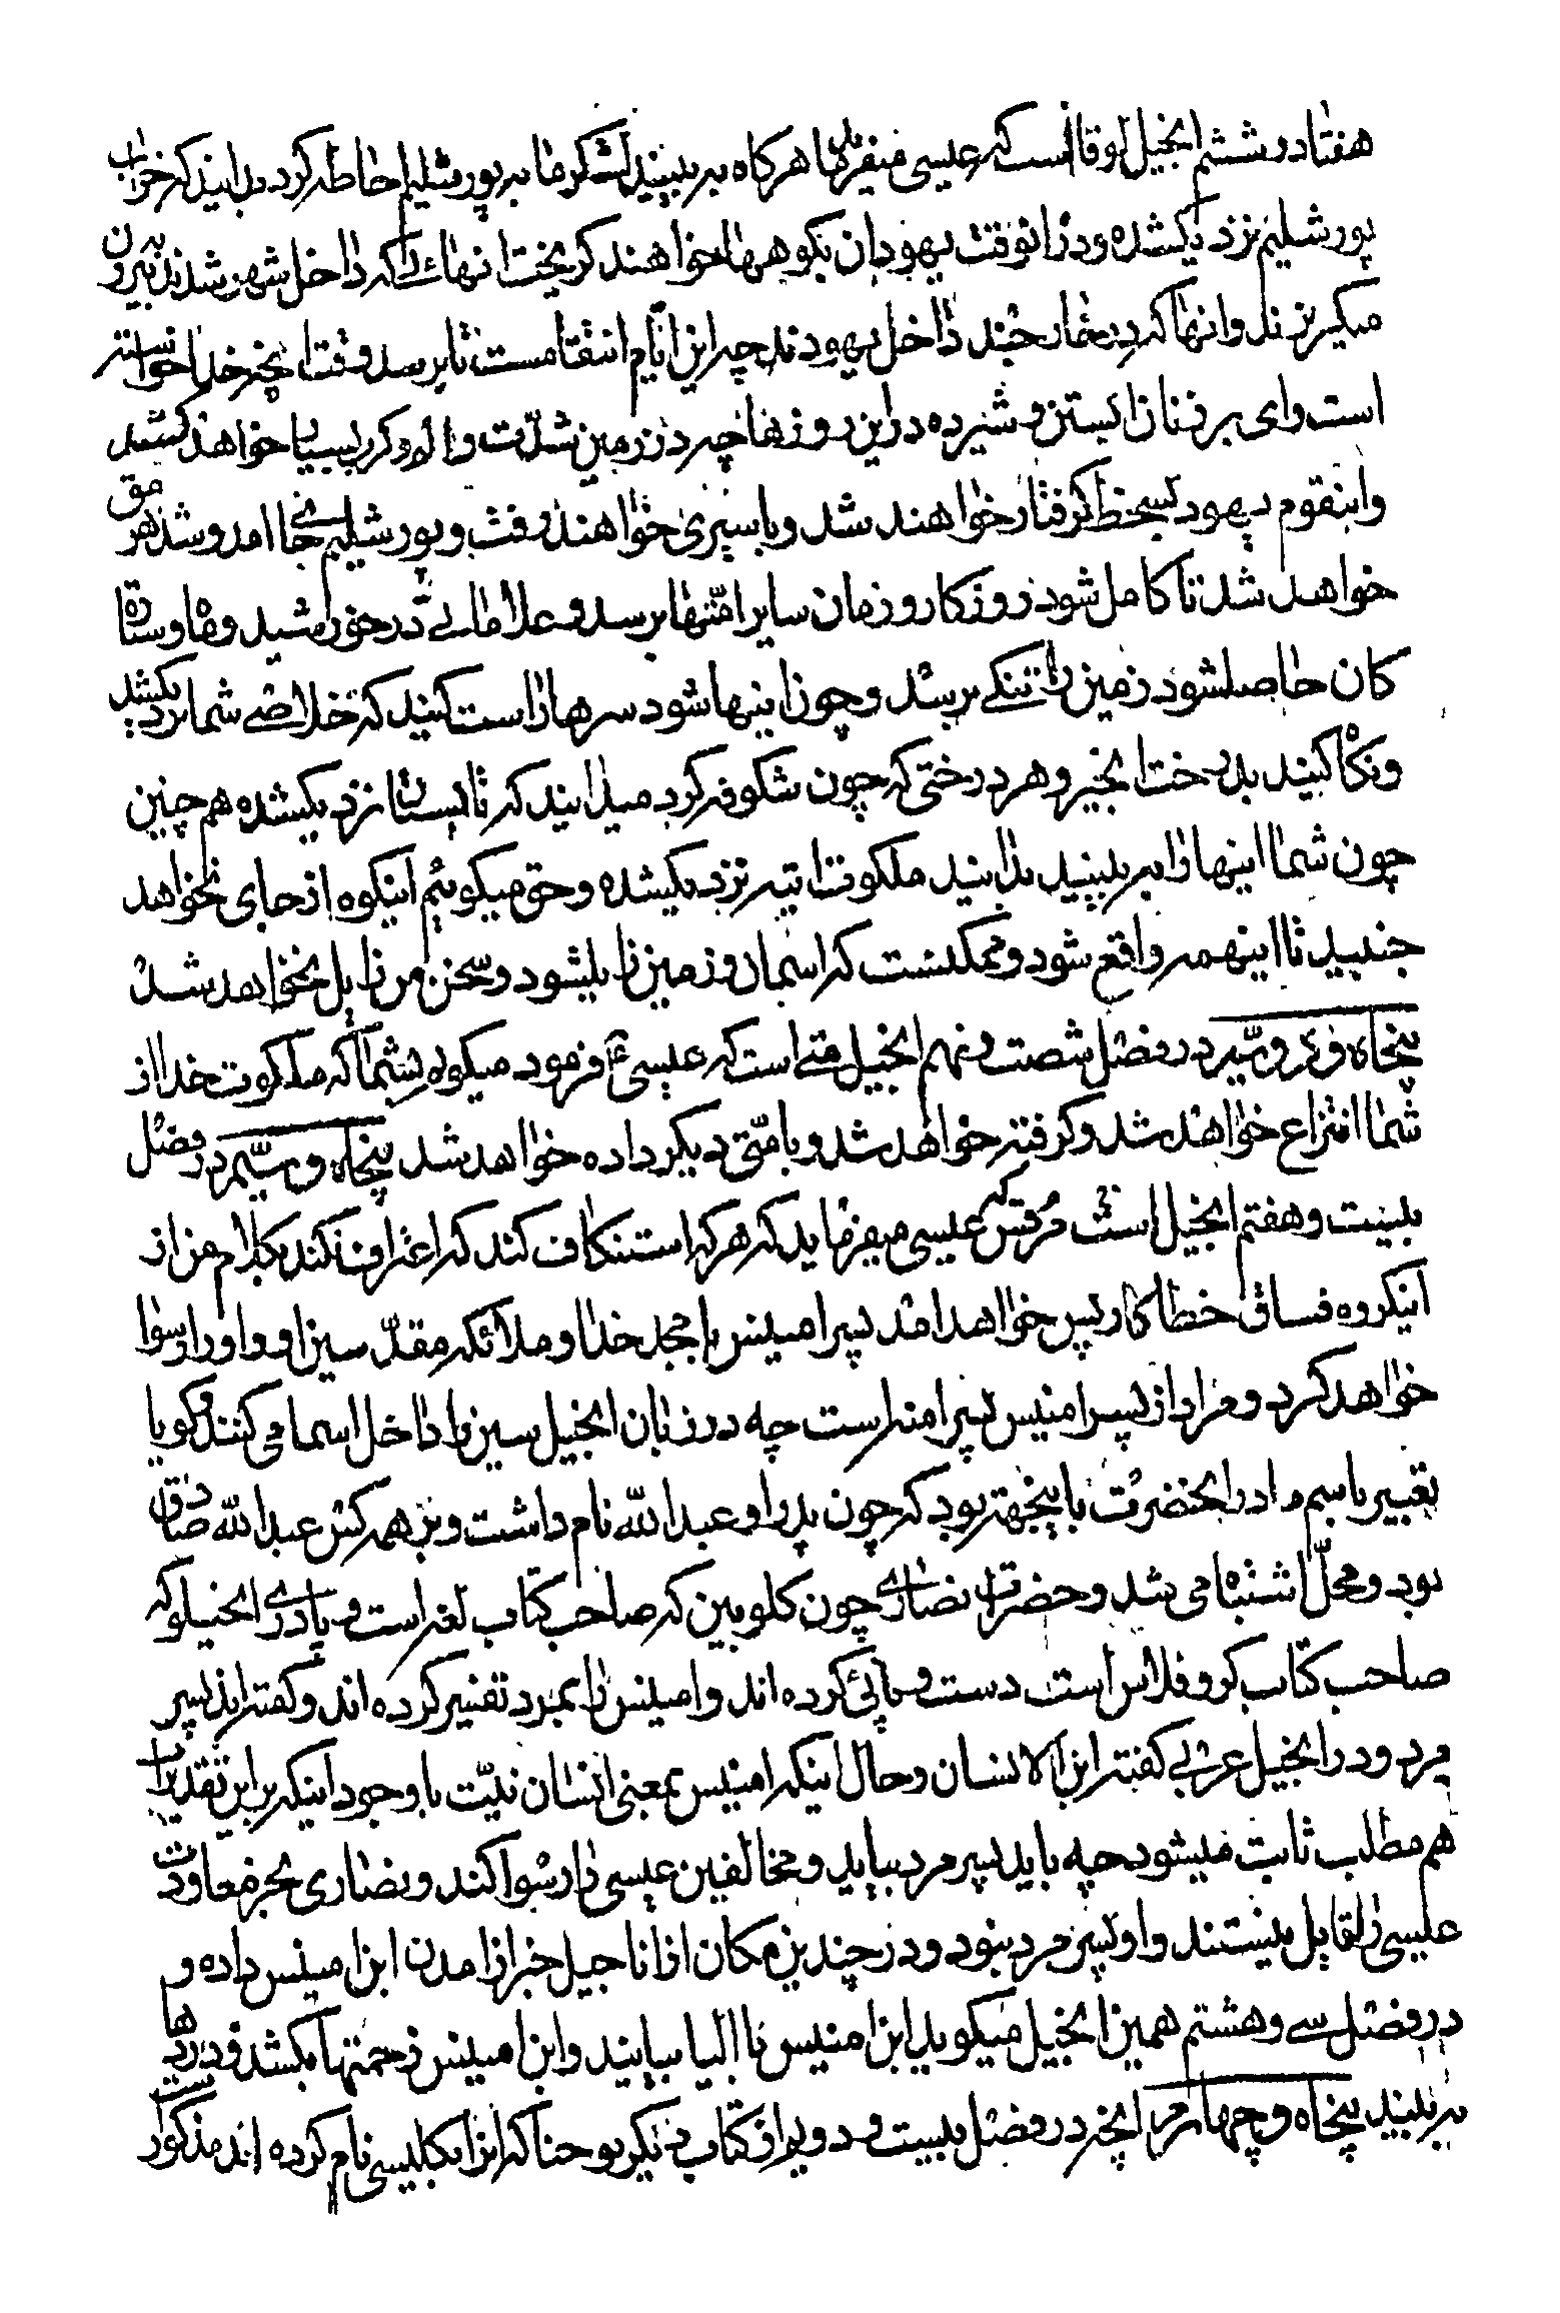 هفتاد و ششم انجیل لوقا است که عیسی میفرماید هرکاه به بینید لشکرها به یورشلیم احاطه کرد بدانید که خراب
یورشلیم نزدیکشده و در انوقت یهودان بکوهها خواهند کریخت انهائیکه داخل شهر شدند به بیرون
میکریزند و انها که در خارجند داخل یهودند چه این ایام انتقامست تا برسد وقت انچه خدا خواسته
است وای بر زنان ابستن و شیرده در این روزها چه در زمین شدت و الم و کرب بسیار خواهند کشید
و اینقوم یهود بسخط کرفتار خواهند شد و باسیری خواهند رفت و یورشلیم جای امد و شد هر
خواهد شد تا کامل شود روزکار و زمان سایر امتها برسد و علاماتی در خورشید و ماه و ستاره
کان حاصلشود زمین را تنکی برسد و چون اینها شود سرها راست کنید که خلاصی شما نزدیکشد
و نکاه کنید بدرخت انجیر و هر درختی که چون شکوفه کرد میدانید که تابستان نزدیکشده هم چنین
چون شما اینها را به بینید بدانید ملکوت نزدیکشده و حق میکویم اینکوه از جای نخواهد
جنبید تا اینهمه واقع شود و ممکنست که اسمان و زمین زایلشود و سخن من زایل نخواهد شد
پنجاه و در فصل شصت و نهم انجیل متی است که عیسی ع فرمود میکویم بشما که ملکوت خدا از
شما انتزاع خواهد شد و کرفته خواهد شد و بامتی دیکر داده خواهد شد پنجاه و سیم در فصل
بیست و هفتم انجیل است مرقس که عیسی میفرماید که هرکه استنکاف کند که اعتراف نکند بکلام من از
اینکروه فساق خطاکار پس خواهد امد پسر امینس با مجد خدا و ملائکه مقدسین او و او را رسوا
خواهد کرد و مراد از پسر امینس پسر امنه است چه در زبان انجیل سین را داخل اسما می کنند و کویا
تعبیر باسم مادر انحضرت باینجهة بود که چون پدر او عبدالله نام داشت و بر همه کس عبدالله صادق
بود و محل اشتباه می شد و حضرات نصاری چون کلوبین که صاحب کتاب لغه است و پادری انجیلو که
صاحب کتاب کروفلاس است دست و پائی کرده اند و امینس را بمرد تفسیر کرده اند و کفته اند پسر
مرد و در انجیل عربی کفته ابن الانسان و حال اینکه امینس بمعنی انسان نیست با وجود اینکه بر این تقدیر
هم مطلب ثابت میشود چه باید پسر مرد بیاید و مخالفین عیسی را رسوا کند و نصاری بحز معاودت
عیسی را قایل نیستند و او پسر مرد نبود و در چندین مکان از اناجیل خبر از امدن ابن امینس داده و
در فصل سی و هشتم همین انجیل میکوید ابن امینس با ایلیا بیایند و ابن امینس زحمتها بکشد و دردها
به بیند پنجاه و چهارم انچه در فصل بیست و دویم از کتاب دیکر یوحنا که انرا ابکلیسی نام کرده اند مذکور است